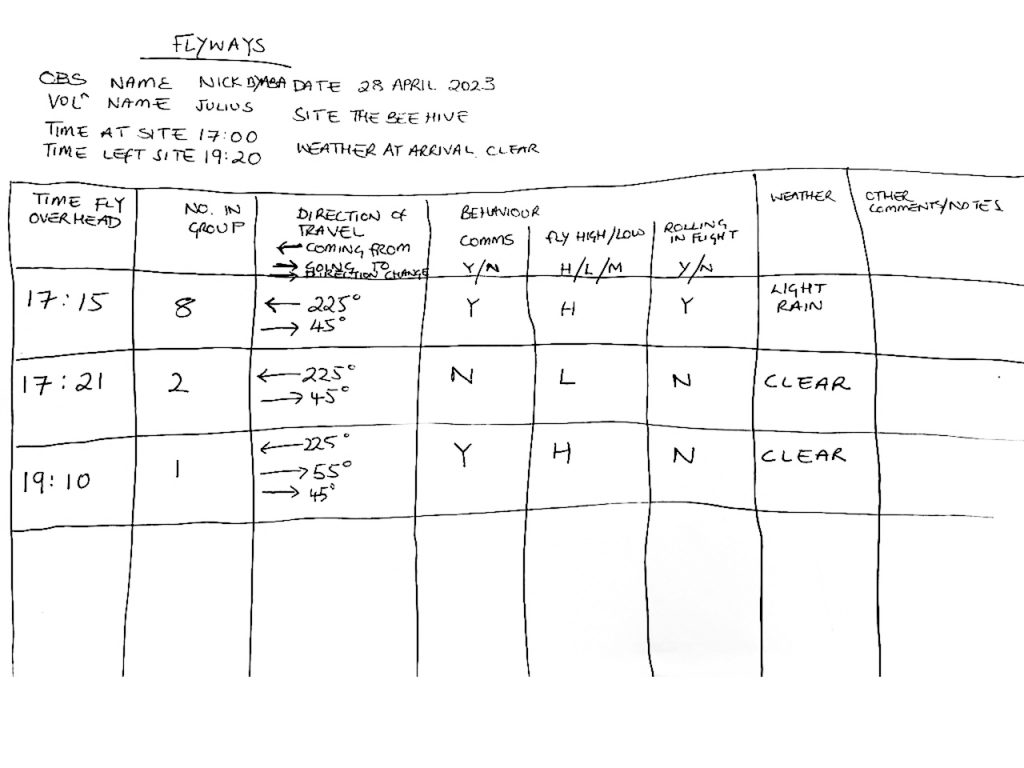 FLYWAYS
OBS NAME NICK DATE 28 APRIL 2023
VOLN NAME JULIUS
SITE THE BEE HIVE
TIME AT SITE 17:00
TIME LEFT SITE 19:20
WEATHER AT ARRIVAL. CLEAR
TIME FLY OVERHEAD
NO. IN GROUP
DIRECTION OF TRAVEL
← COMING FROM
→ GOING TO
→ DIRECTION CHANGE
BEHAVIOUR
COMMS
Y/N
FLY HIGH/LOW
H/L/M
ROLLING IN FLIGHT
Y/N
WEATHER
OTHER COMMENTS/NOTES
17:15 8 ← 225° Y H Y LIGHT RAIN
→ 45°
17:21 2 ← 225° N L N CLEAR
→ 45°
19:10 1 ← 225° Y H N CLEAR
→ 55°
→ 45°